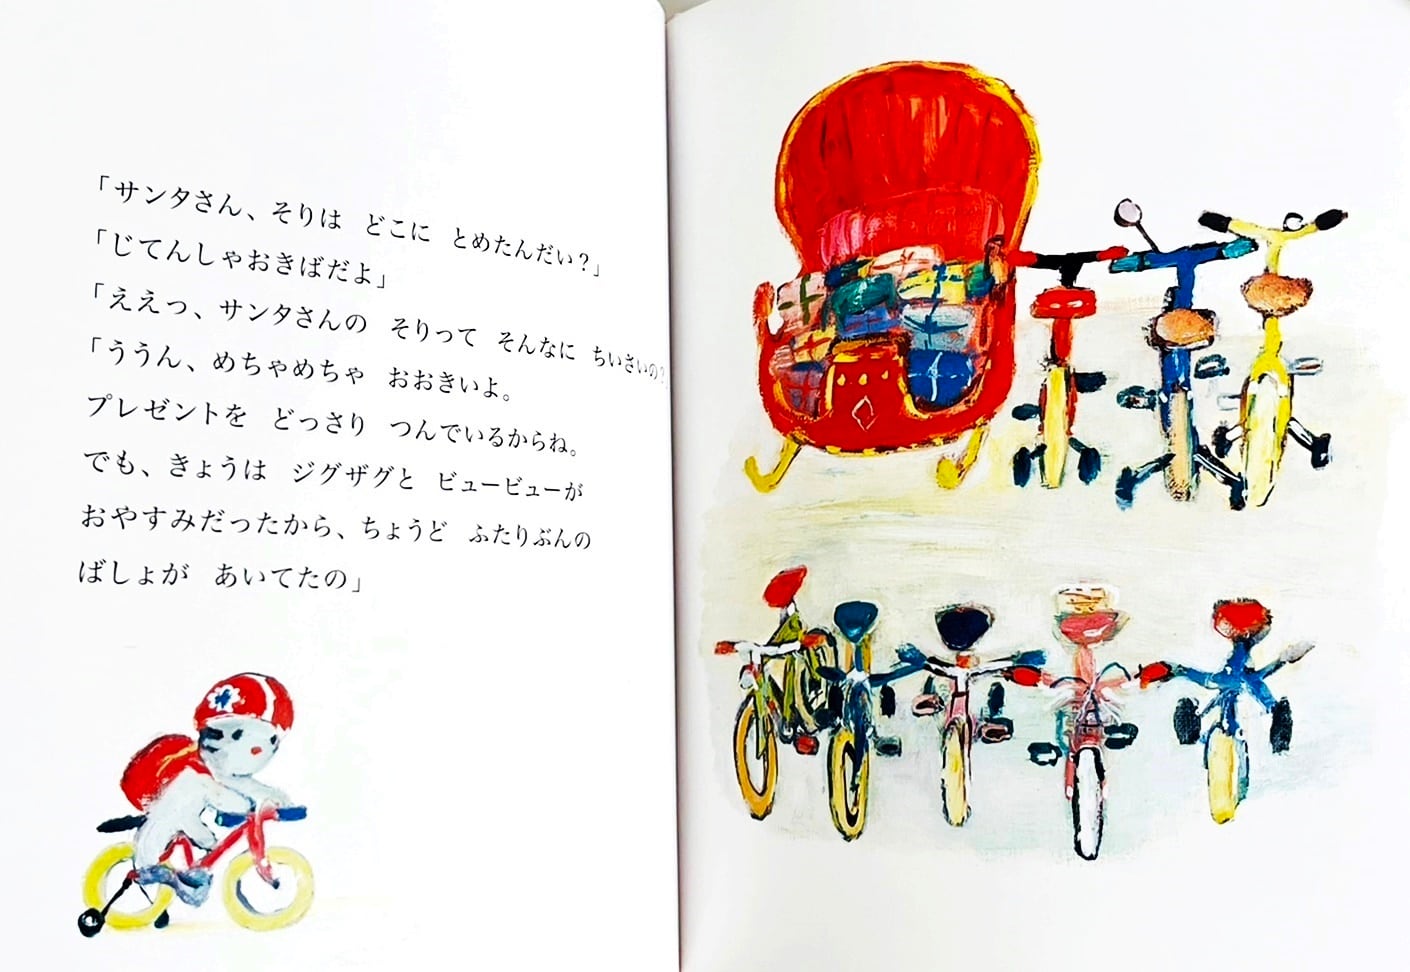 「サンタさん、そりは　どこに　とめたんだい？」
「じてんしゃおきばだよ」
「ええっ、サンタさんの　そりって　そんなに　ちいさいの？
「ううん、めちゃめちゃ　おおきいよ。
プレゼントを　どっさり　つんでいるからね。
でも、きょうは　ジグザグと　ビュービューが
おやすみだったから、ちょうど　ふたりぶんの
ばしょが　あいてたの」